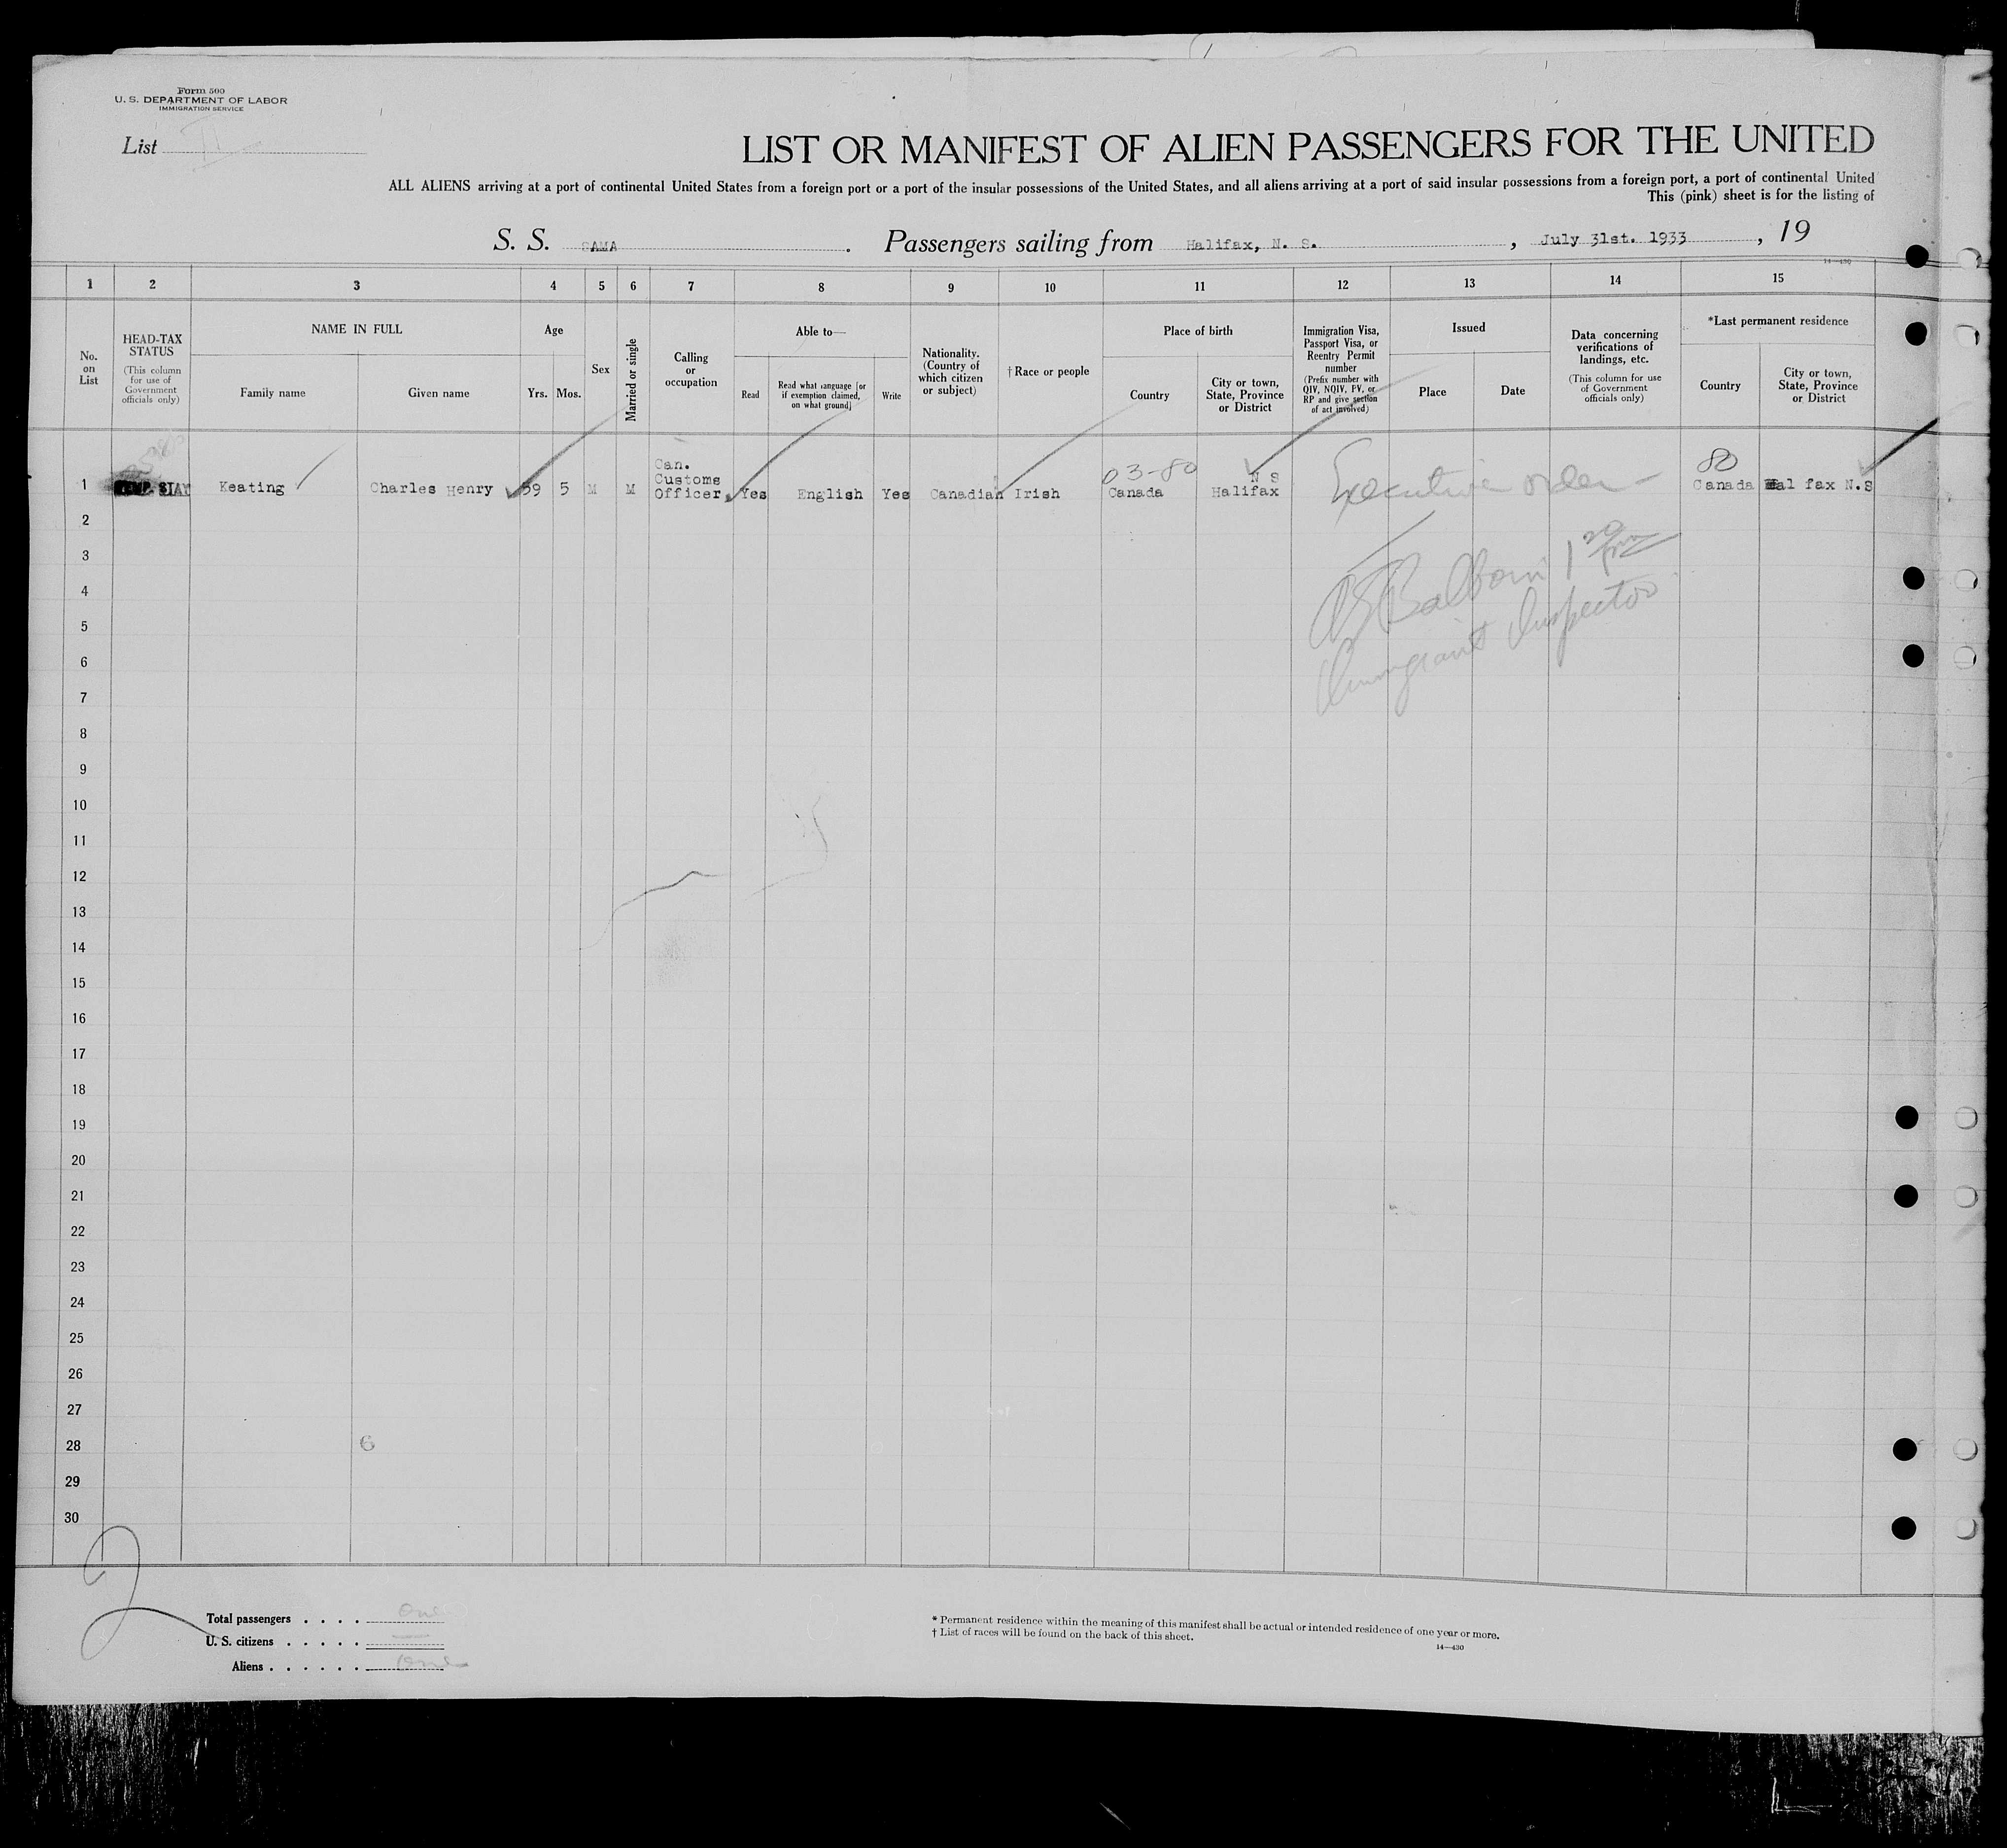 Form 500
U. S. DEPARTMENT OF LABOR
IMMIGRATION SERVICE
List II
LIST OR MANIFEST OF ALIEN PASSENGERS FOR THE UNITED
ALL ALIENS arriving at a port of continental United States from a foreign port or a port of the insular possessions of the United States, and all aliens arriving at a port of said insular possessions from a foreign port, a port of continental United
This (pink) sheet is for the listing of
S. S. SAMA. Passengers sailing from Halifax, N. S., July 31st. 1933, 19
14—430
1 2 3 4 5 6 7 8 9 10 11 12 13 14 15
No. on List
HEAD-TAX STATUS
(This column for use of Government officials only)
NAME IN FULL
Family name
Given name
Age
Yrs. Mos.
Sex
Married or single
Calling or occupation
Able to—
Read
Read what language [or if exemption claimed, on what ground]
Write
Nationality. (Country of which citizen or subject)
†Race or people
Place of birth
Country
City or town, State, Province or District
Immigration Visa, Passport Visa, or Reentry Permit number
(Prefix number with QIV, NQIV, PV, or RP and give section of act involved)
Issued
Place
Date
Data concerning verifications of landings, etc.
(This column for use of Government officials only)
*Last permanent residence
Country
City or town, State, Province or District
03-80
80
Can. Customs Officer.
N S
1 TEMP. STAY Keating Charles Henry 59 5 M M Yes English Yes Canadian Irish Canada Halifax Executive order Canada Hal fax N.S
1 20 pm
Immigrant Inspector
2
3
4
5
6
7
8
9
10
11
12
13
14
15
16
17
18
19
20
21
22
23
24
25
26
27
28 6
29
30
2
Total passengers . . . . One
U. S. citizens . . . . .
Aliens . . . . . . One
* Permanent residence within the meaning of this manifest shall be actual or intended residence of one year or more.
† List of races will be found on the back of this sheet.
14—430